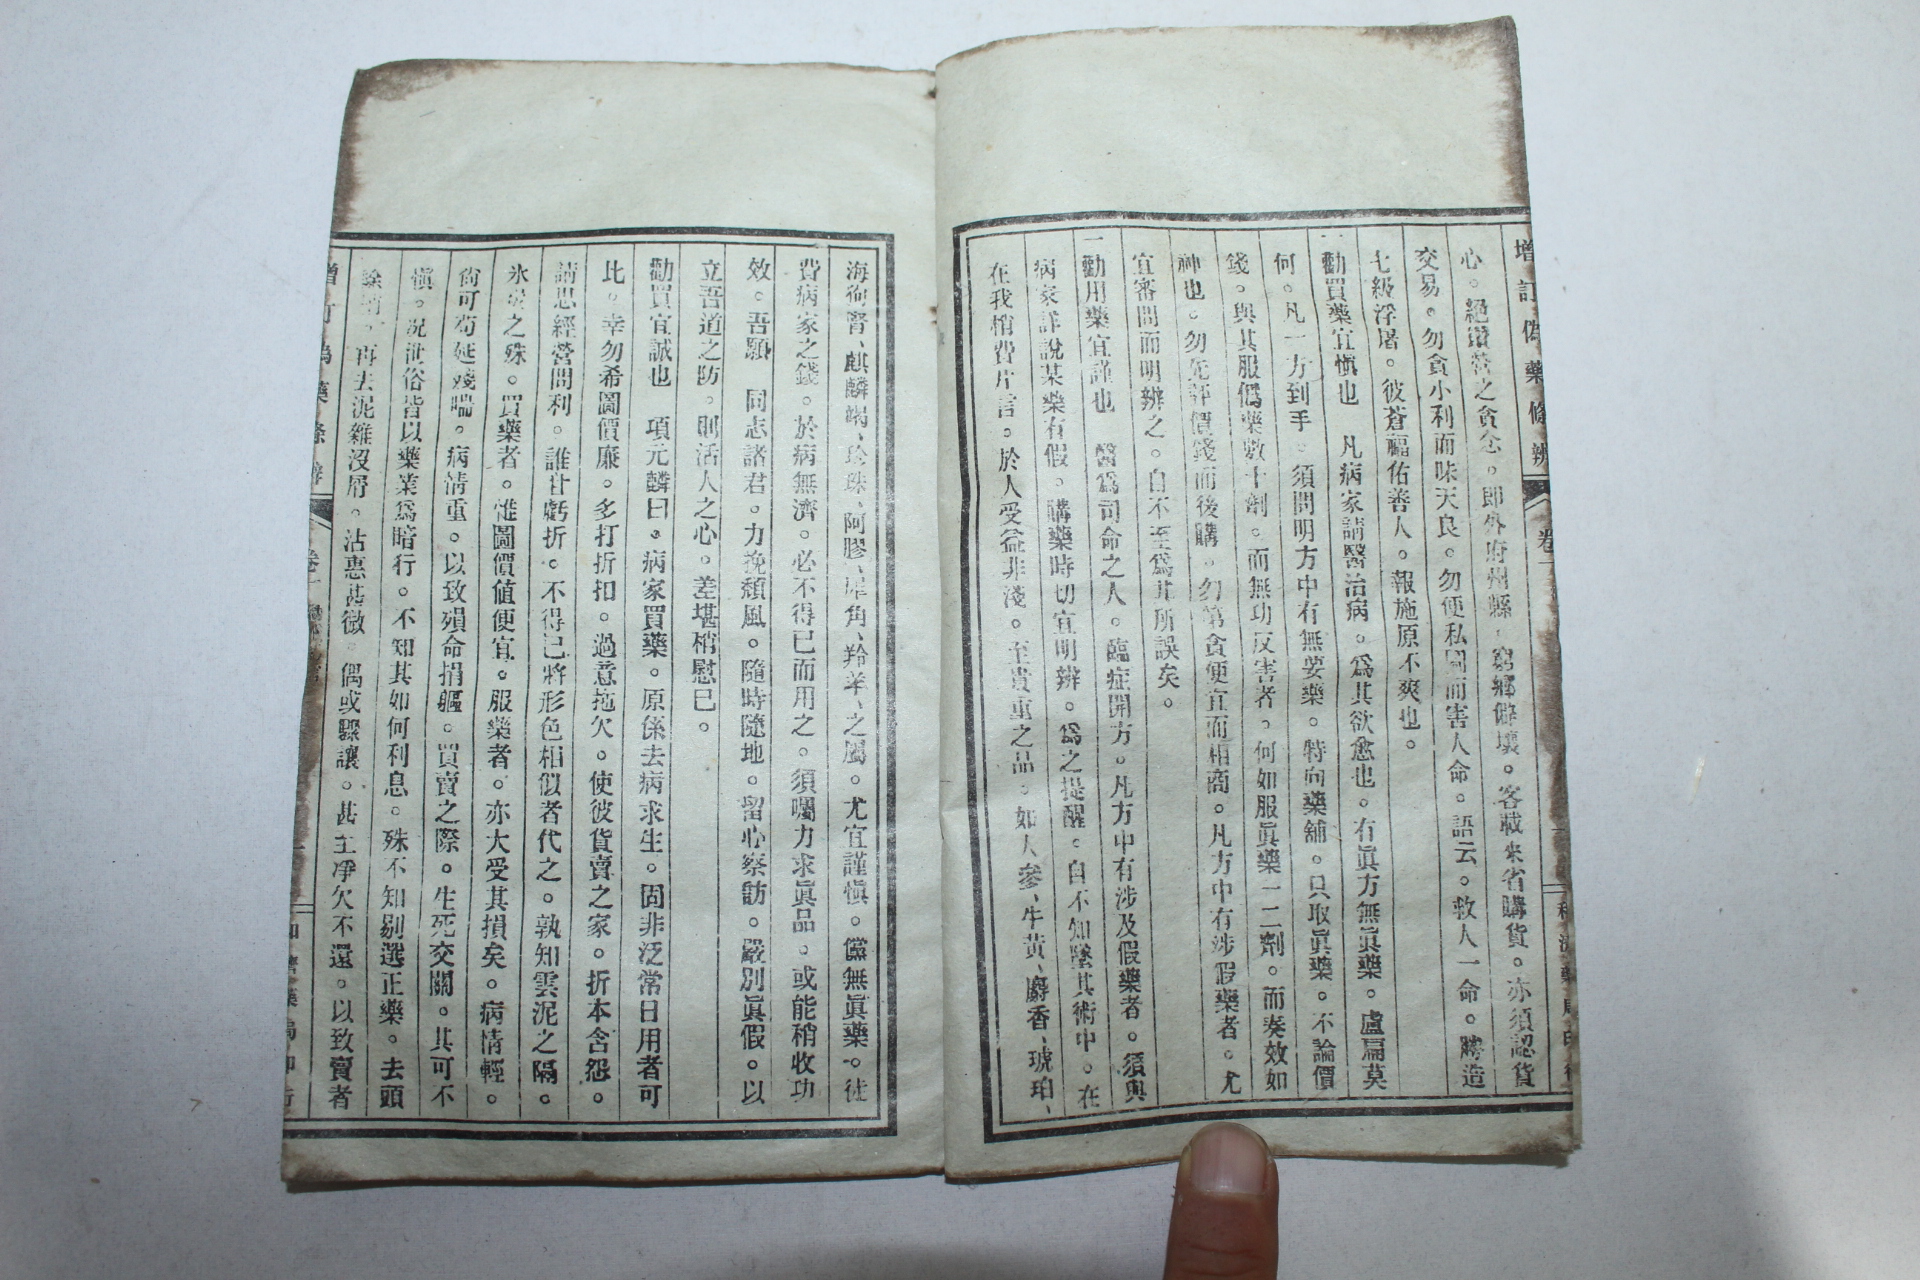 增訂僞藥條辨
卷一
心。絕鑽營之貪念。即外府州縣。窮鄉僻壤。客販來省購貨。亦須認貨
交易。勿貪小利而昧天良。勿便私圖而害人命。語云。救人一命。勝造
七級浮屠。彼蒼福佑善人。報施原不爽也。
一勸買藥宜愼也　凡病家請醫治病。爲其欲愈也。有眞方無眞藥。盧扁莫
何。凡一方到手。須問明方中有無要藥。特向藥舖。只取眞藥。不論價
錢。與其服僞藥數十劑。而無功反害者。何如服眞藥一二劑。而奏效如
神也。勿先評價錢而後購。勿第貪便宜而相商。凡方中有涉假藥者。尤
宜審問而明辨之。自不至爲其所誤矣。
一勸用藥宜謹也　醫爲司命之人。臨症開方。凡方中有涉及假藥者。須與
病家詳說某藥有假。購藥時切宜明辨。爲之提醒。自不知墜其術中。在
在我稍費片言。於人受益非淺。至貴重之品。如人參、牛黃、麝香、琥珀、
海狗腎、麒麟竭、珍珠、阿膠、犀角、羚羊、之屬。尤宜謹愼。儻無眞藥。徒
費病家之錢。於病無濟。必不得已而用之。須囑力求眞品。或能稍收功
效。吾願　同志諸君。力挽頹風。隨時隨地。留心察訪。嚴別眞假。以
立吾道之防。則活人之心。差堪稍慰已。
勸買宜誠也　項元麟曰。病家買藥。原係去病求生。固非泛常日用者可
比。幸勿希圖價廉。多打折扣。過意拖欠。使彼貨賣之家。折本含怨。
請思經營問利。誰甘虧折。不得已將形色相似者代之。孰知雲泥之隔。
氷炭之殊。買藥者。惟圖價値便宜。服藥者。亦大受其損矣。病情輕。
尙可苟延殘喘。病情重。以致殞命捐軀。買賣之際。生死交關。其可不
愼。況世俗皆以藥業爲暗行。不知其如何利息。殊不知别選正藥。去頭
除稍。再去泥雜沒屑。沾惠甚微。偶或驟讓。甚至凈欠不還。以致賣者
增訂僞藥條辨
卷一
和濟藥局印行